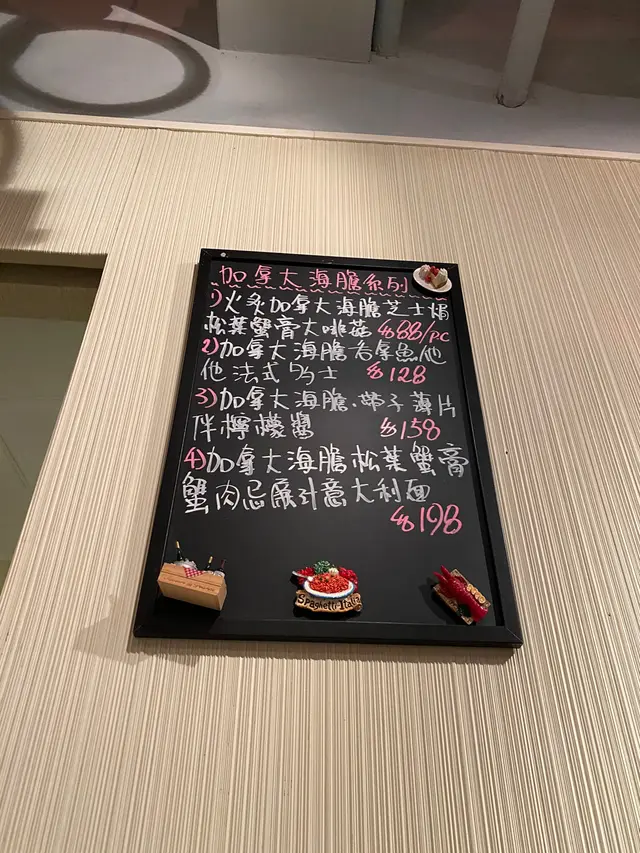 加拿大海膽系列
1)火炙加拿大海膽芝士焗
松葉蟹膏大啡菇 $88/pc
2)加拿大海膽吞拿魚他
他法式多士 $128
3)加拿大海膽、帶子薄片
伴檸檬醬 $158
4)加拿大海膽松葉蟹膏
蟹肉忌廉汁意大利面
$198
Spaghetti-Italia